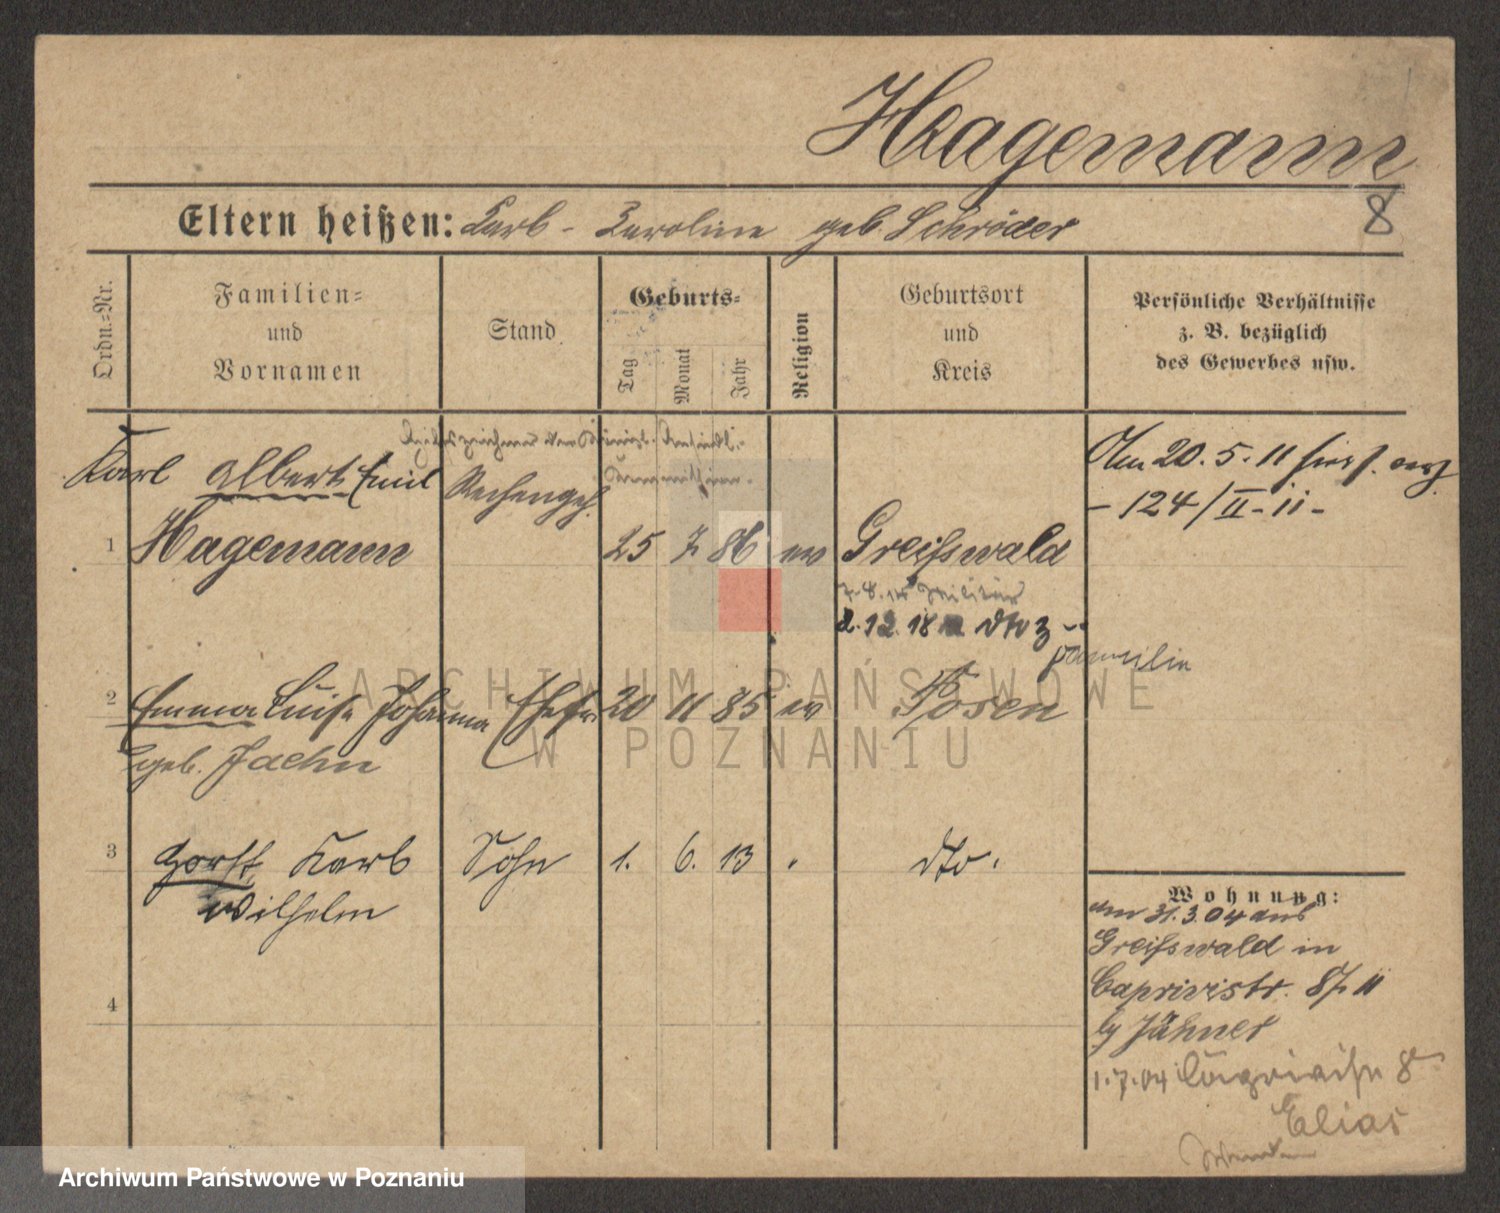 Hagemann
8
Eltern heißen: Karl - Karoline geb. Schröder
Ordn.=Nr.
Familien=
und
Vornamen
Stand
Geburts=
Tag
Monat
Jahr
Religion
Geburtsort
und
Kreis
Persönliche Verhältnisse
z. B. bezüglich
des Gewerbes usw.
Karl Albert Emil
Rechengeh.
Am 20. 5. 11
- 124/II - 11 -
1 Hagemann 25 7 86 ev Greifswald
Militär
2. 12. 18 dto z
Familie
2 Emma Luise Johanna Ehefr. 20 11 85 ev Posen
geb. Jaehn
3 Horst Karl Sohn 1. 6. 13 dto.
Wilhelm
4
Wohnung:
am 31.3.04 aus
Greifswald in
Caprivistr. 87 II
by Jähner
1.7.04 8
Elias
ARCHIWUM PAŃSTWOWE
W POZNANIU
Archiwum Państwowe w Poznaniu